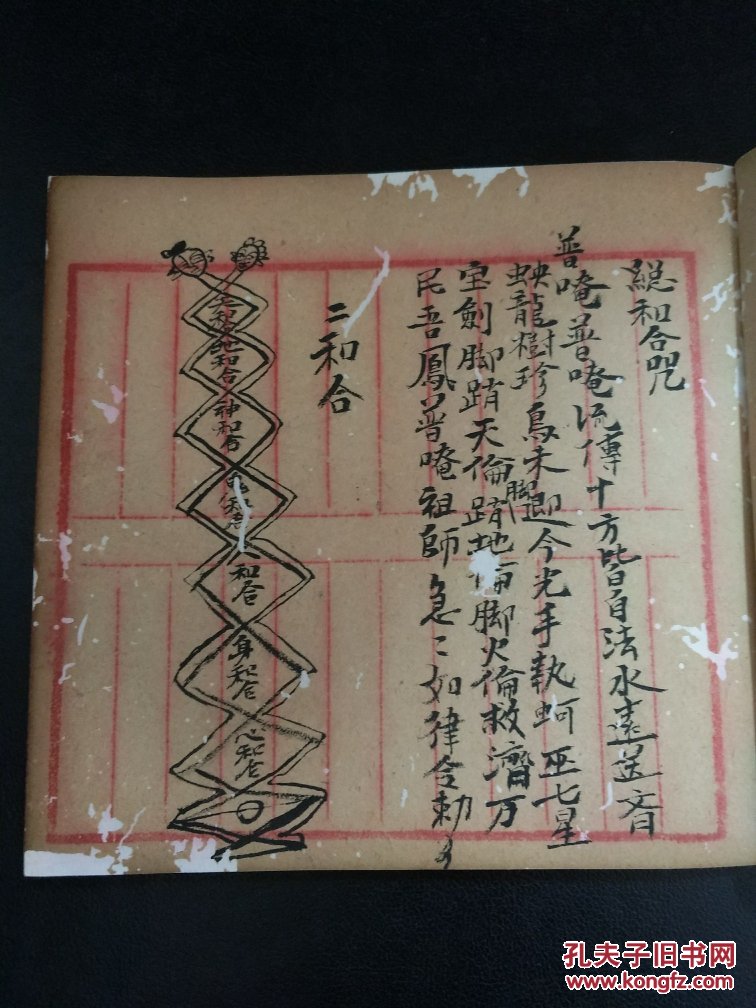 總和合咒
普唵普唵流傳十方皆自法水遠送
蚗龍樹珍鳥未迎今光手執蚵巫七星
宝劍脚踏天倫脚踏地倫脚火倫救濟万
民吾鳳普唵祖師急〻如律令勅
二和合
地和合
神和合
和合
身和合
心和合
孔夫子旧书网
www.kongfz.com